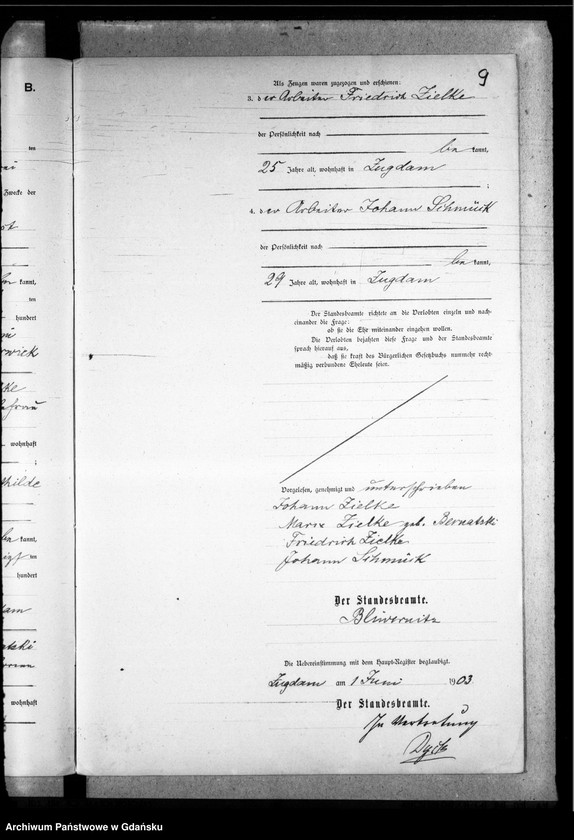 B.
9
Als Zeugen waren zugezogen und erschienen:
3. der Arbeiter Friedrich Zielke
der Persönlichkeit nach
be kannt,
25 Jahre alt, wohnhaft in Zugdam
;
4. der Arbeiter Johann Schmück
der Persönlichkeit nach
be kannt,
29 Jahre alt, wohnhaft in Zugdam
Der Standesbeamte richtete an die Verlobten einzeln und nach-
einander die Frage:
ob sie die Ehe miteinander eingehen wollen.
Die Verlobten bejahten diese Frage und der Standesbeamte
sprach hierauf aus,
daß sie kraft des Bürgerlichen Gesetzbuchs nunmehr recht-
mäßig verbundene Eheleute seien.
Vorgelesen, genehmigt und unterschrieben
Johann Zielke
Marie Zielke geb. Bernatzki
Friedrich Zielke
Johann Schmück
Der Standesbeamte.
Die Uebereinstimmung mit dem Haupt-Register beglaubigt.
Zugdam am 1 Juni 1903
Der Standesbeamte.
In Vertretung
ten
Zwecke der
kannt,
ten
hundert
wohnhaft
;
kannt,
ten
hundert
wohnhaft
Archiwum Państwowe w Gdańsku